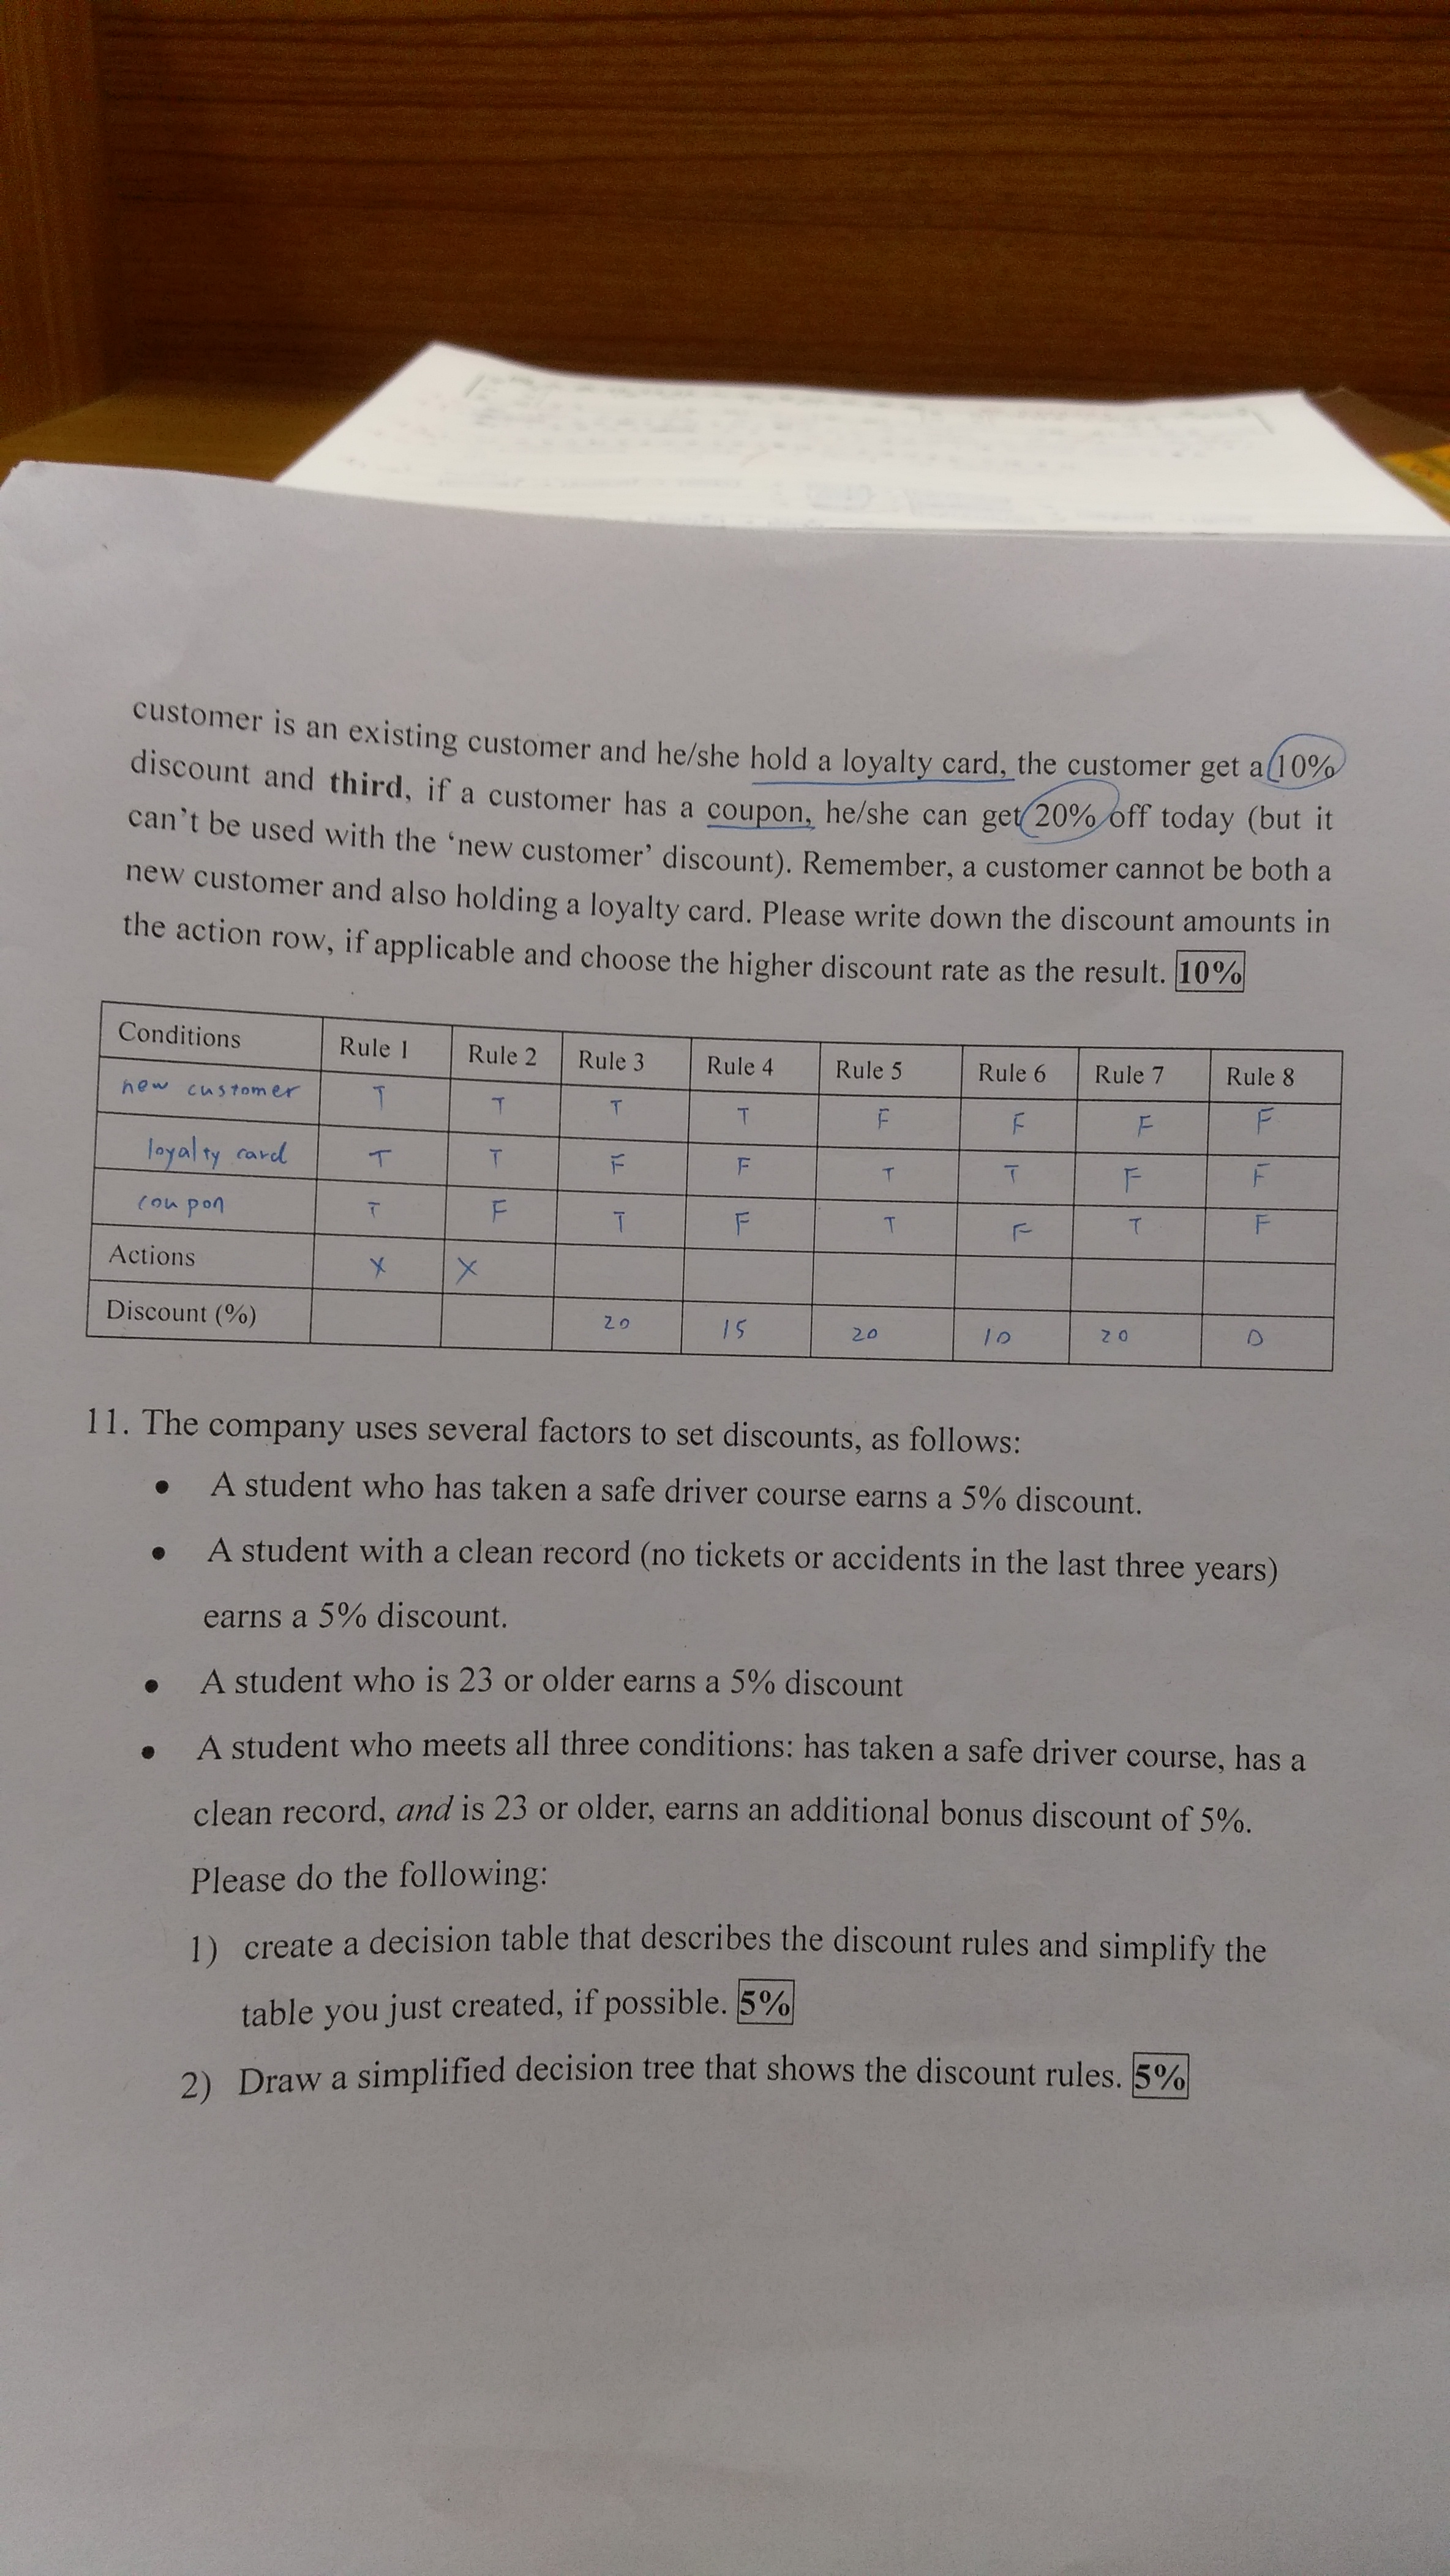 customer is an existing customer and he/she hold a loyalty card, the customer get a 10%
discount and third, if a customer has a coupon, he/she can get 20% off today (but it
can't be used with the 'new customer' discount). Remember, a customer cannot be both a
new customer and also holding a loyalty card. Please write down the discount amounts in
the action row, if applicable and choose the higher discount rate as the result. 10%
Conditions Rule 1 Rule 2 Rule 3 Rule 4 Rule 5 Rule 6 Rule 7 Rule 8
new customer T T T T F F F F
loyalty card T T F F T T F F
coupon T F T F T F T F
Actions X X
Discount (%) 20 15 20 10 20 0
11. The company uses several factors to set discounts, as follows:
• A student who has taken a safe driver course earns a 5% discount.
• A student with a clean record (no tickets or accidents in the last three years)
earns a 5% discount.
• A student who is 23 or older earns a 5% discount
• A student who meets all three conditions: has taken a safe driver course, has a
clean record, and is 23 or older, earns an additional bonus discount of 5%.
Please do the following:
1) create a decision table that describes the discount rules and simplify the
table you just created, if possible. 5%
2) Draw a simplified decision tree that shows the discount rules. 5%